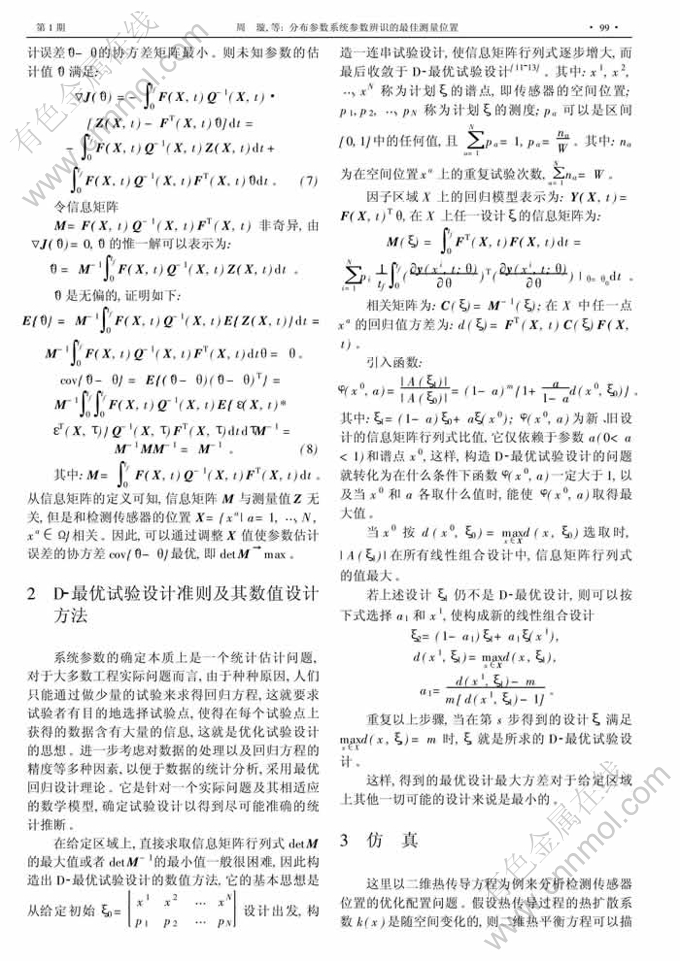 第 1 期 周 璇,等: 分布参数系统参数辨识的最佳测量位置 · 99 ·
计误差 θ̂- θ的协方差矩阵最小。则未知参数的估
计值 θ̂ 满足:
∇J( θ̂) = - ∫₀^{t_f} F(X, t) Q⁻¹(X, t) ·
[Z(X, t) - Fᵀ(X, t) θ̂]dt =
- ∫₀^{t_f} F(X, t) Q⁻¹(X, t) Z(X, t)dt +
∫₀^{t_f} F(X, t) Q⁻¹(X, t) Fᵀ(X, t) θ̂dt 。 (7)
令信息矩阵
M= F(X, t) Q⁻¹(X, t) Fᵀ(X, t) 非奇异, 由
∇J( θ̂) = 0, θ̂ 的惟一解可以表示为:
θ̂ = M⁻¹∫₀^{t_f} F(X, t) Q⁻¹(X, t) Z(X, t)dt 。
θ̂ 是无偏的, 证明如下:
E[ θ̂] = M⁻¹∫₀^{t_f} F(X, t) Q⁻¹(X, t) E[Z(X, t)]dt =
M⁻¹∫₀^{t_f} F(X, t) Q⁻¹(X, t) Fᵀ(X, t)dtθ = θ 。
cov[ θ̂- θ] = E[( θ̂- θ)( θ̂- θ)ᵀ] =
M⁻¹∫₀^{t_f}∫₀^{t_f} F(X, t) Q⁻¹(X, t) E[ε(X, t)*
εᵀ(X, τ)] Q⁻¹(X, τ) Fᵀ(X, τ)dtdτM⁻¹ =
M⁻¹MM⁻¹ = M⁻¹ 。 (8)
其中: M= ∫₀^{t_f} F(X, t) Q⁻¹(X, t) Fᵀ(X, t)dt 。
从信息矩阵的定义可知, 信息矩阵 M 与测量值 Z 无
关, 但是和检测传感器的位置 X= [xᵃ| a= 1, …, N,
xᵃ∈ Ω]相关。因此, 可以通过调整 X 值使参数估计
误差的协方差 cov[ θ̂- θ]最优, 即 detM→max 。
2 D-最优试验设计准则及其数值设计
方法
系统参数的确定本质上是一个统计估计问题,
对于大多数工程实际问题而言, 由于种种原因, 人们
只能通过做少量的试验来求得回归方程, 这就要求
试验者有目的地选择试验点, 使得在每个试验点上
获得的数据含有大量的信息, 这就是优化试验设计
的思想。进一步考虑对数据的处理以及回归方程的
精度等多种因素, 以便于数据的统计分析, 采用最优
回归设计理论。它是针对一个实际问题及其相适应
的数学模型, 确定试验设计以得到尽可能准确的统
计推断。
在给定区域上, 直接求取信息矩阵行列式 detM
的最大值或者 detM⁻¹的最小值一般很困难, 因此构
造出 D-最优试验设计的数值方法, 它的基本思想是
从给定初始 ξ₀= [x¹ x² … xᴺ; p₁ p₂ … p_N] 设计出发, 构
造一连串试验设计, 使信息矩阵行列式逐步增大, 而
最后收敛于 D-最优试验设计[11~13]。其中: x¹, x²,
…, xᴺ 称为计划 ξ 的谱点, 即传感器的空间位置;
p₁, p₂, …, p_N 称为计划 ξ 的测度; pₐ 可以是区间
[0, 1]中的任何值, 且 Σ_{a=1}^{N} pₐ= 1, pₐ= nₐ/W 。其中: nₐ
为在空间位置 xᵃ 上的重复试验次数, Σ_{a=1}^{N} nₐ= W 。
因子区域 X 上的回归模型表示为: Y(X, t) =
F(X, t)ᵀ θ, 在 X 上任一设计 ξ 的信息矩阵为:
M(ξ) = ∫₀^{t_f} Fᵀ(X, t) F(X, t)dt =
Σ_{i=1}^{N} pᵢ 1/t_f ∫₀^{t_f} (∂y(xⁱ, t; θ)/∂θ)ᵀ(∂y(xⁱ, t; θ)/∂θ) |_{θ=θ₀}dt 。
相关矩阵为: C(ξ) = M⁻¹(ξ); 在 X 中任一点
xᵃ 的回归值方差为: d(ξ) = Fᵀ(X, t) C(ξ) F(X,
t) 。
引入函数:
φ(x⁰, a) = |A(ξ₁)|/|A(ξ₀)| = (1- a)ᵐ[1+ a/(1- a) d(x⁰, ξ₀)] 。
其中: ξ₁= (1- a)ξ₀+ aξ(x⁰); φ(x⁰, a)为新、旧设
计的信息矩阵行列式比值, 它仅依赖于参数 a(0< a
< 1)和谱点 x⁰, 这样, 构造 D-最优试验设计的问题
就转化为在什么条件下函数 φ(x⁰, a)一定大于 1, 以
及当 x⁰ 和 a 各取什么值时, 能使 φ(x⁰, a)取得最
大值。
当 x⁰ 按 d(x⁰, ξ₀) = max_{x∈X} d(x, ξ₀) 选取时,
|A(ξ₁)|在所有线性组合设计中, 信息矩阵行列式
的值最大。
若上述设计 ξ₁ 仍不是 D-最优设计, 则可以按
下式选择 a₁ 和 x¹, 使构成新的线性组合设计
ξ₂= (1- a₁)ξ₁+ a₁ξ(x¹),
d(x¹, ξ₁) = max_{x∈X} d(x, ξ₁),
a₁= (d(x¹, ξ₁) - m)/(m[d(x¹, ξ₁) - 1]) 。
重复以上步骤, 当在第 s 步得到的设计 ξₛ 满足
max_{x∈X} d(x, ξₛ) = m 时, ξₛ 就是所求的 D-最优试验设
计。
这样, 得到的最优设计最大方差对于给定区域
上其他一切可能的设计来说是最小的。
3 仿 真
这里以二维热传导方程为例来分析检测传感器
位置的优化配置问题。假设热传导过程的热扩散系
数 k(x)是随空间变化的, 则二维热平衡方程可以描
有色金属在线
www.cnnmol.com
有色金属在线
www.cnnmol.com